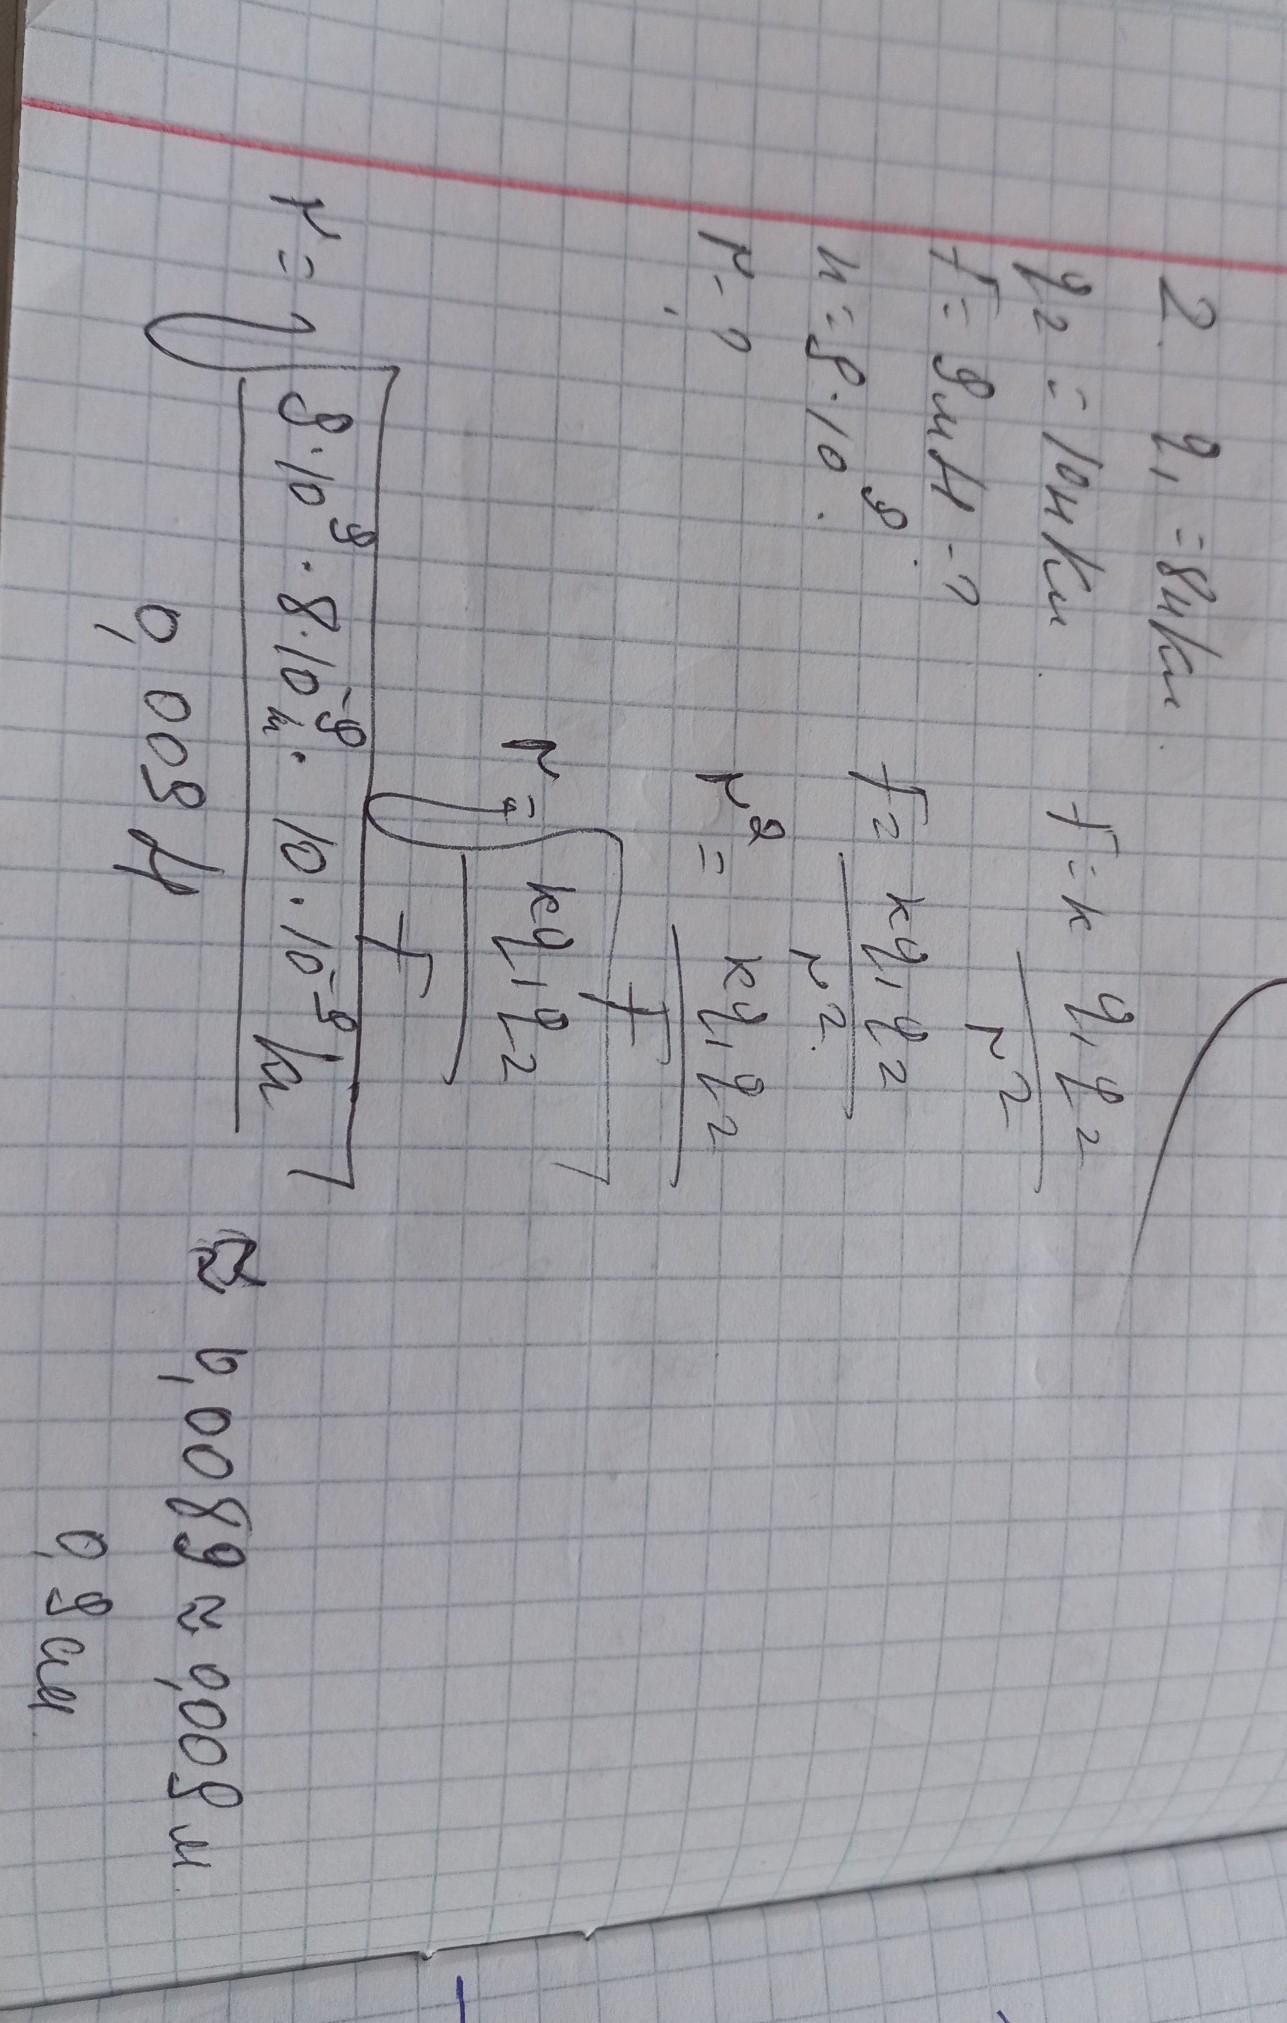 2. q₁ = 8нКл.
q₂ = 10нКл
F = 9мН - ?
к = 9·10⁹.
r - ?
F = к q₁q₂ / r²
F = кq₁q₂ / r²
r² = кq₁q₂ / F
r = √(кq₁q₂ / F)
r = √(9·10⁹ · 8·10⁻⁹ · 10·10⁻⁹Кл / 0,009 Н) ≈ 0,0089 ≈ 0,009 м
0,9 см.